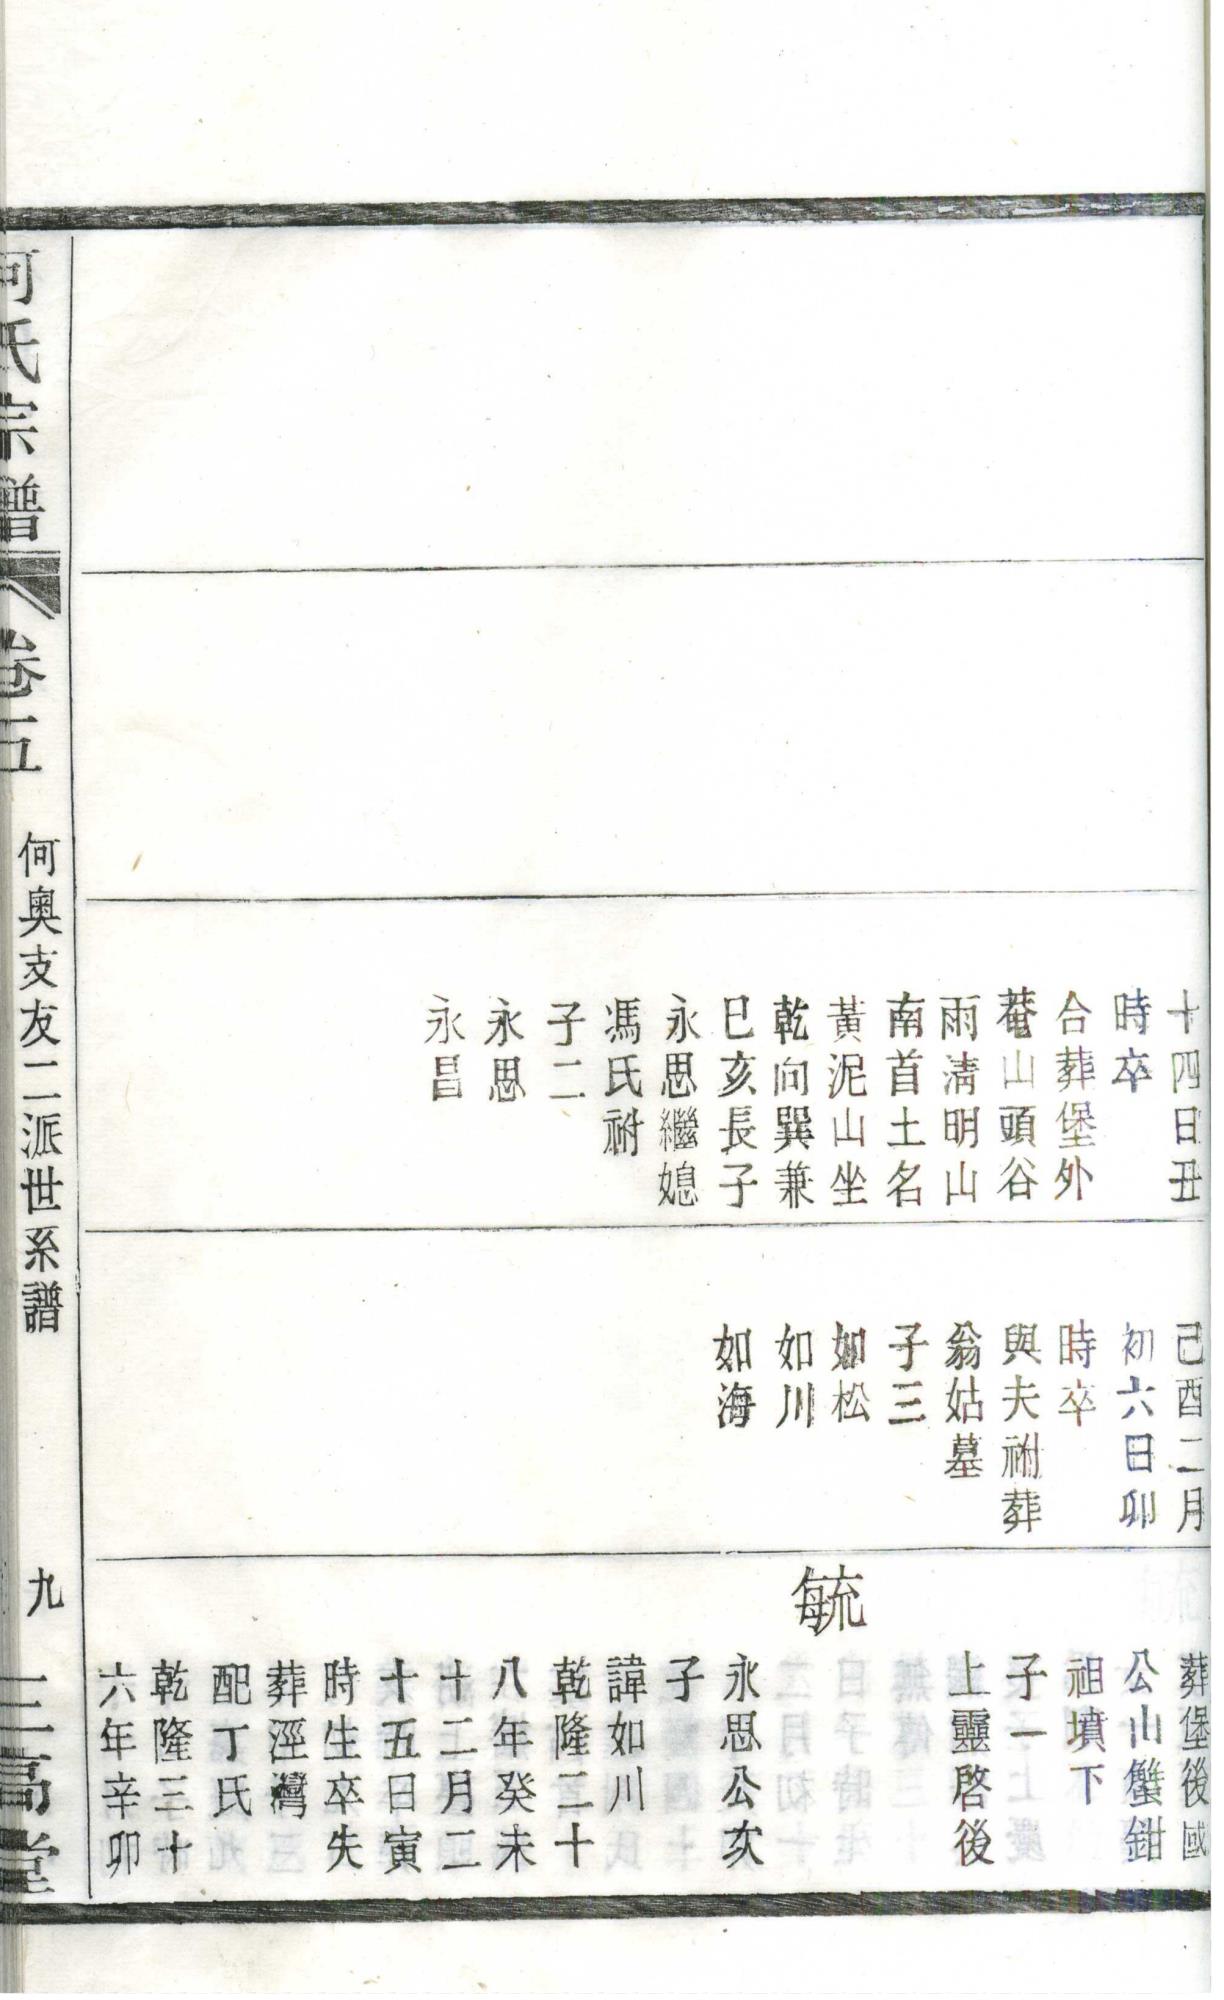 十四日丑
時卒
合葬堡外
菴山頭谷
雨淸明山
南首土名
黃泥山坐
乾向巽兼
巳亥長子
永思繼媳
馮氏祔
子二
永思
永昌
己酉二月
初六日卯
時卒
與夫祔葬
翁姑墓
子三
如松
如川
如海
葬堡後國
公山蟹鉗
祖墳下
子一
上靈啓後
毓
永思公次
子
諱如川
乾隆二十
八年癸未
十二月二
十五日寅
時生卒失
葬涇灣
配丁氏
乾隆三十
六年辛卯
何氏宗譜
卷五
何奥支友二派世系譜
九
三高堂